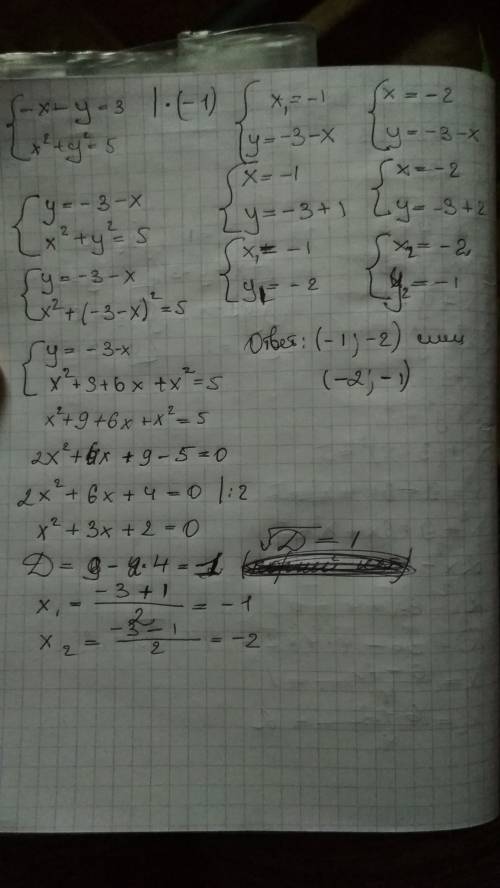 {-x - y = 3 | · (-1)
{x² + y² = 5
{y = -3 - x
{x² + y² = 5
{y = -3 - x
{x² + (-3 - x)² = 5
{y = -3 - x
{x² + 9 + 6x + x² = 5
x² + 9 + 6x + x² = 5
2x² + 6x + 9 - 5 = 0
2x² + 6x + 4 = 0 | : 2
x² + 3x + 2 = 0
D = 9 - 2 · 4 = 1 √D = 1
x₁ = (-3 + 1)/2 = -1
x₂ = (-3 - 1)/2 = -2
{x₁ = -1
{y = -3 - x
{x = -1
{y = -3 + 1
{x₁ = -1
{y₁ = -2
{x = -2
{y = -3 - x
{x = -2
{y = -3 + 2
{x₂ = -2
{y₂ = -1
Ответ: (-1; -2) или
(-2; -1)